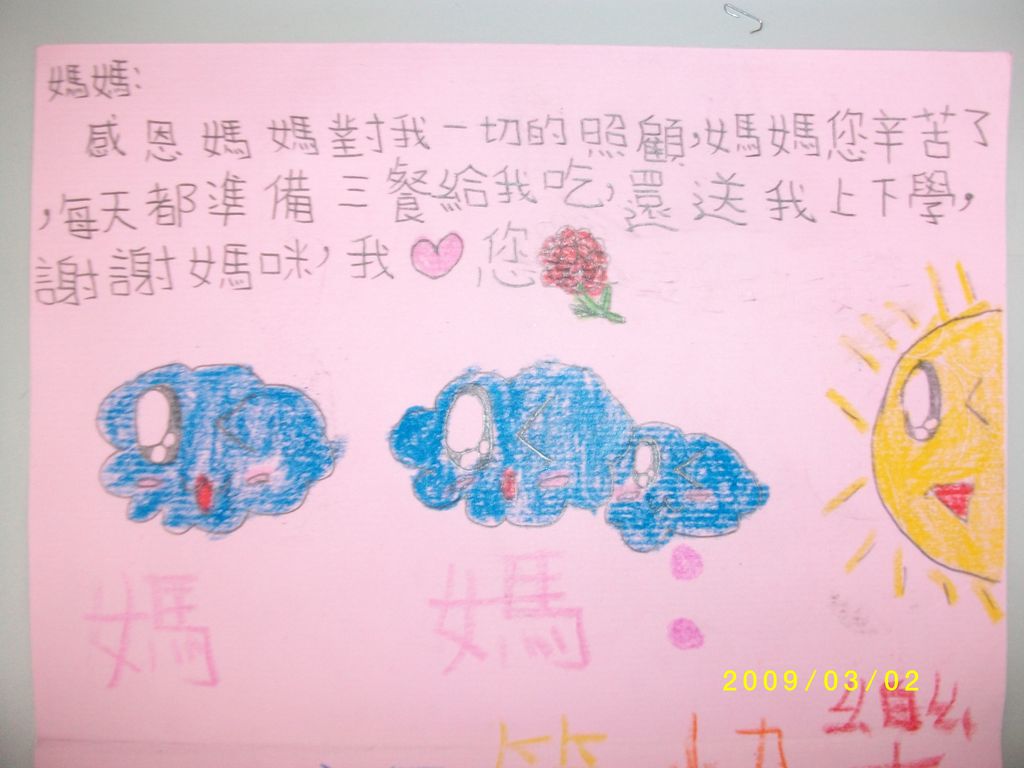 媽媽:
感恩媽媽對我一切的照顧,媽媽您辛苦了
,每天都準備三餐給我吃,還送我上下學,
謝謝媽咪,我♥您
媽 媽:
2009/03/02